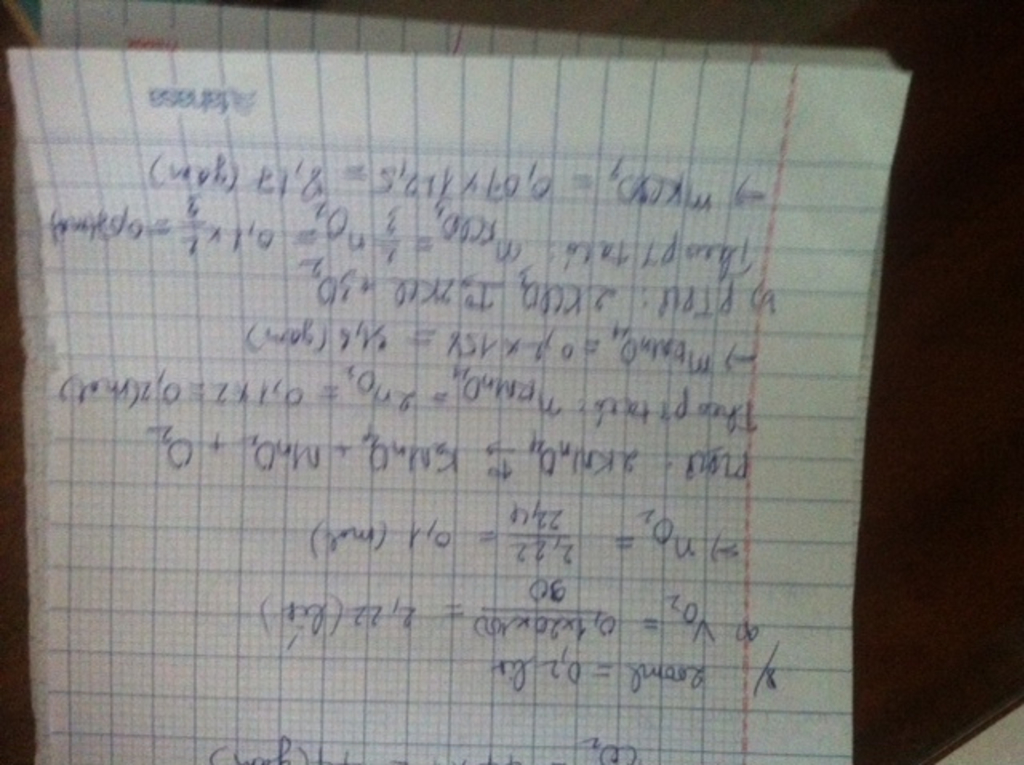 CO₂ = (gam)
8/ 200ml = 0,2 lít
a) V O₂ = 0,1x20x100 / 90 = 2,22 (lít)
→ nO₂ = 2,22 / 22,4 = 0,1 (mol)
PTPƯ: 2KMnO₄ t°→ K₂MnO₄ + MnO₂ + O₂
Theo pt ta có: nKMnO₄ = 2nO₂ = 0,1x2 = 0,2(mol)
→ mKMnO₄ = 0,2 x 158 = 31,6 (gam)
b) PTPƯ: 2KClO₃ t°→ 2KCl + 3O₂
Theo pt ta có: nKClO₃ = 2/3 nO₂ = 0,1 x 2/3 = (mol)
→ mKClO₃ = 0,07 x 122,5 = 8,17 (gam)